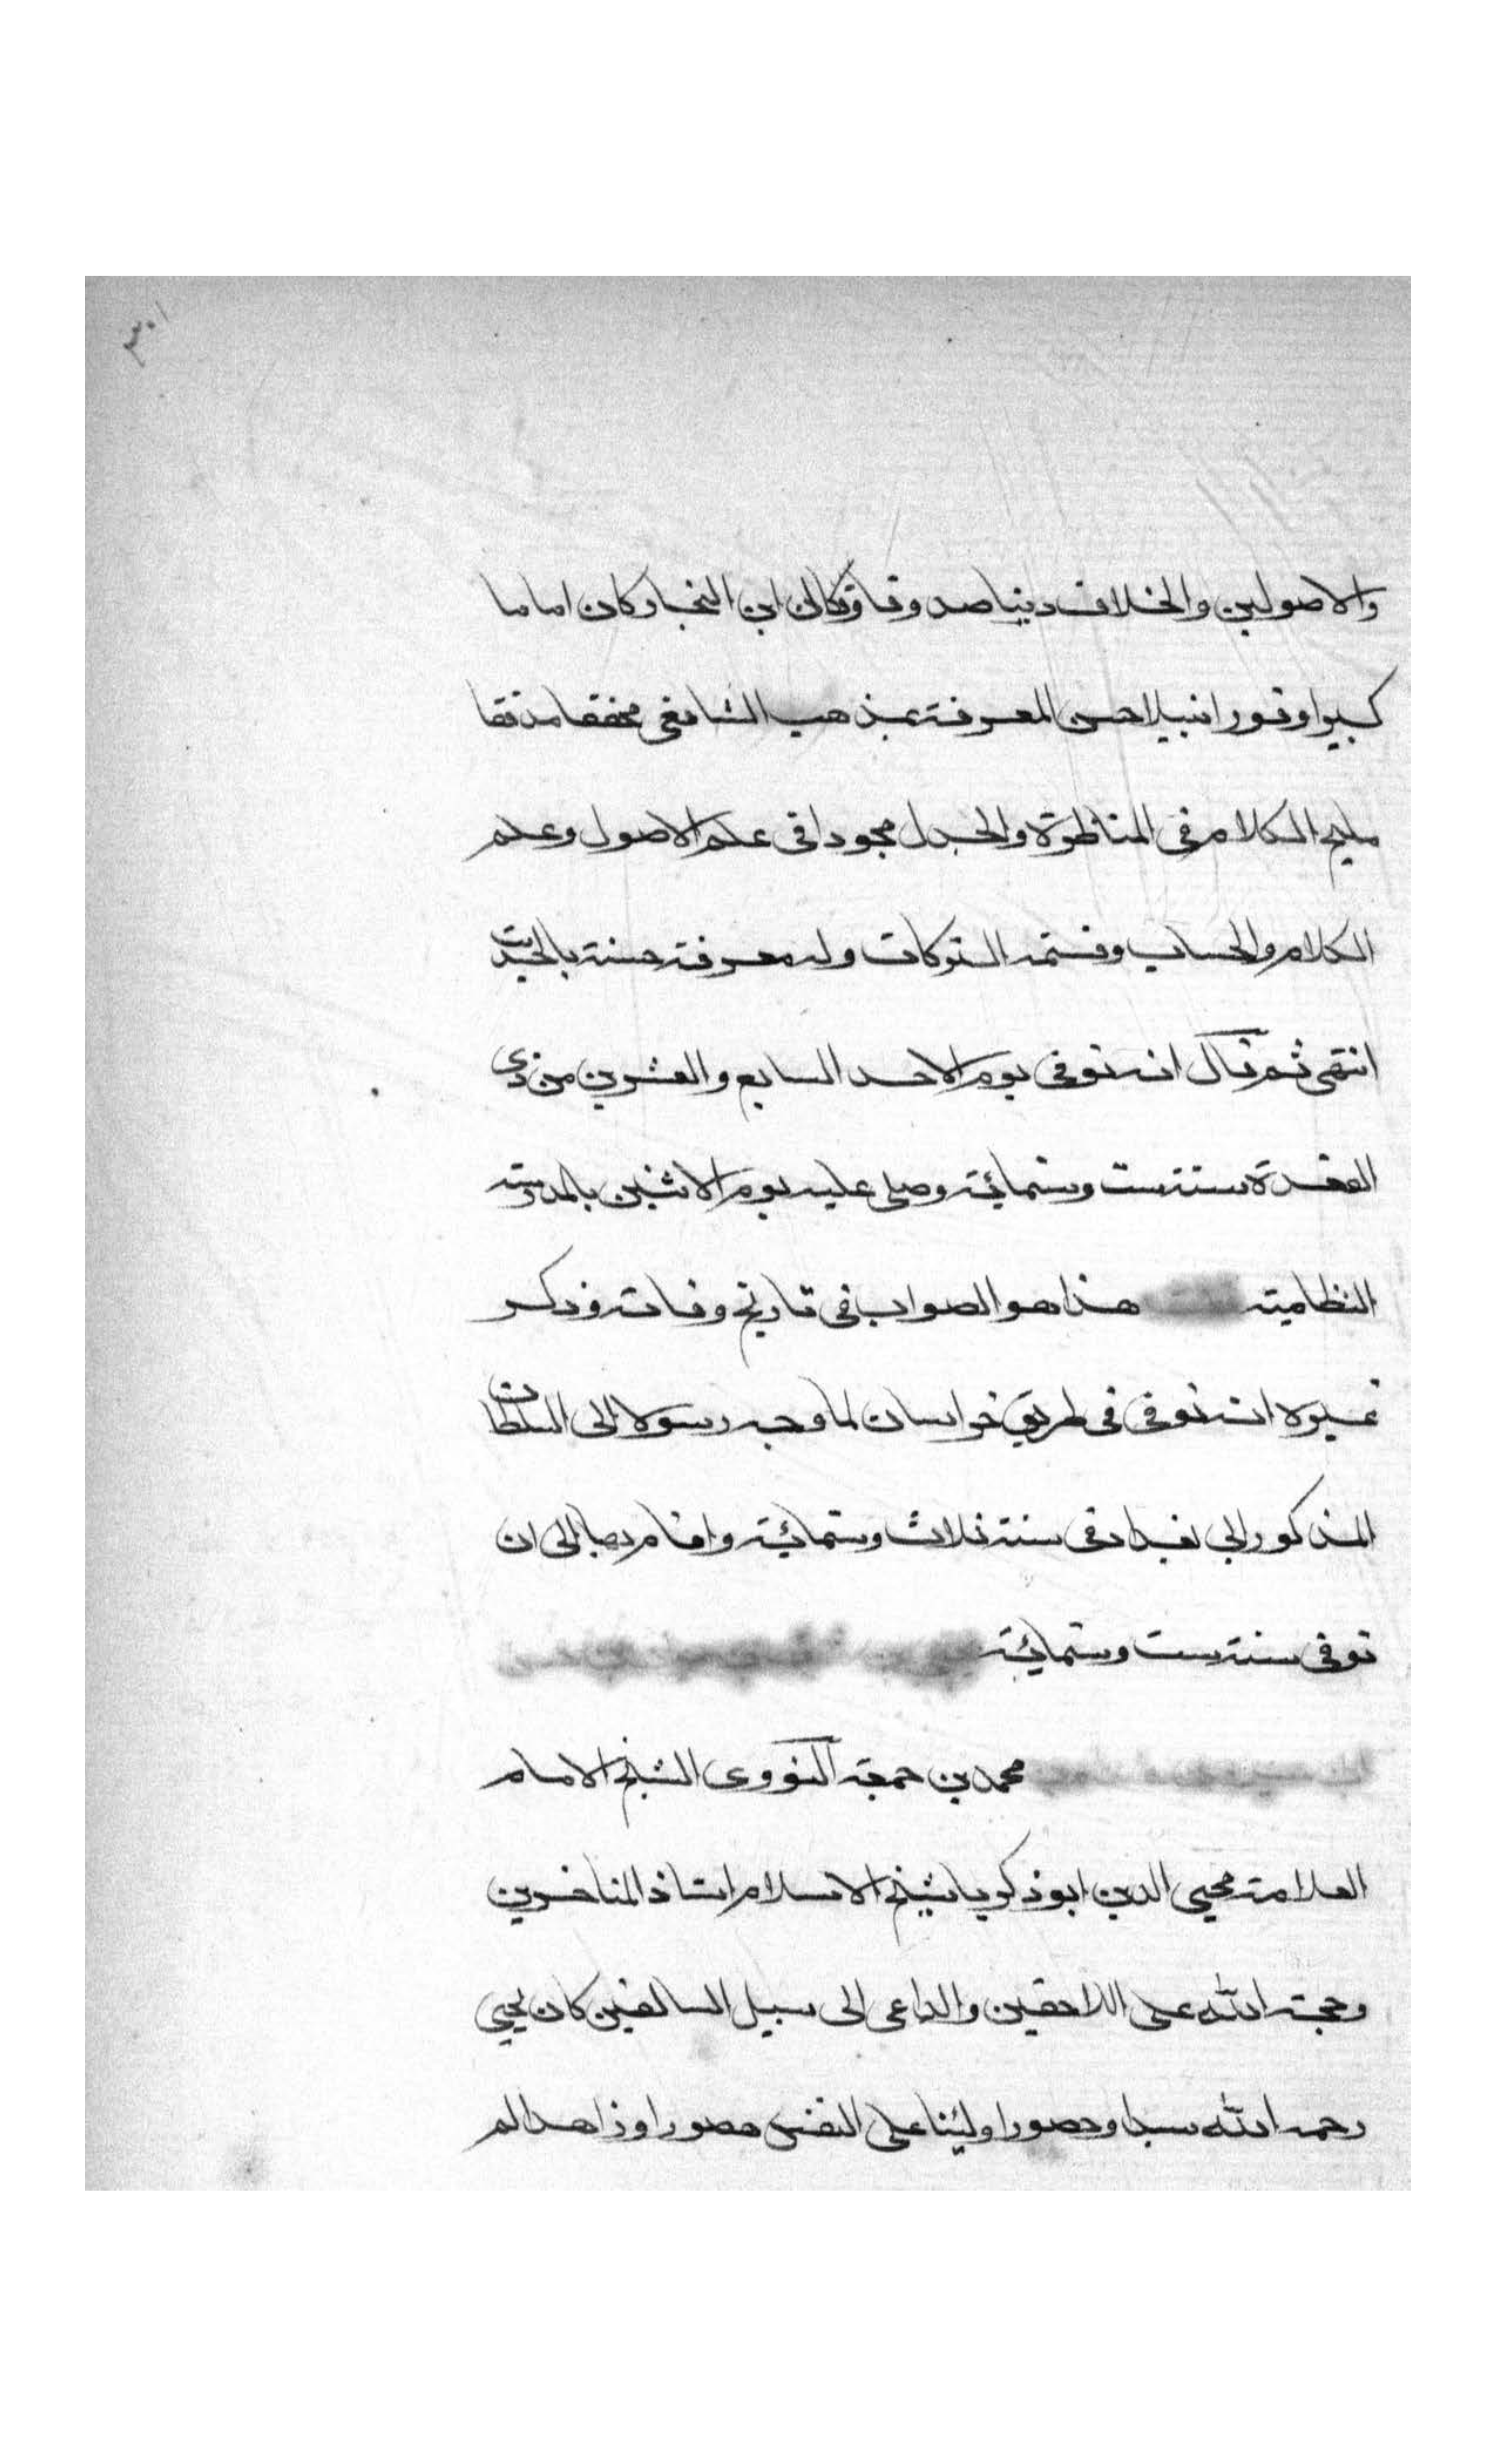 ٣٠١
والاصولين والخلاف دينا صدوقا وقال ابن النجار كان اماما
كبيرا وقورا نبيلا حسن المعرفة بمذهب الشافعي محققا مدققا
مليح الكلام في المناظرة والجدل مجودا في علم الاصول وعلم
الكلام والحساب وقسمة التركات وله معرفة حسنة بالحديث
انتهى ثم قال انه توفي يوم الاحد السابع والعشرين من ذي
القعدة سنة ست وستمائة وصلي عليه يوم الاثنين بالمدرسة
النظامية هذا هو الصواب في تاريخ وفاته وذكر
غيره انه توفي في طريق خراسان لما وجه رسولا الى السلطان
المذكور الي بغداد في سنة ثلاث وستمائة واقام بها الى ان
توفي سنة ست وستمائة
محمد بن جمعة النووي الشيخ الامام
العلامة محيي الدين ابو ذكريا شيخ الاسلام استاذ المتاخرين
وحجة الله على اللاحقين والداعي الى سبيل السالفين كان يحيى
رحمه الله سيدا وحصورا وليثا على النفس هصورا وزاهدا لم